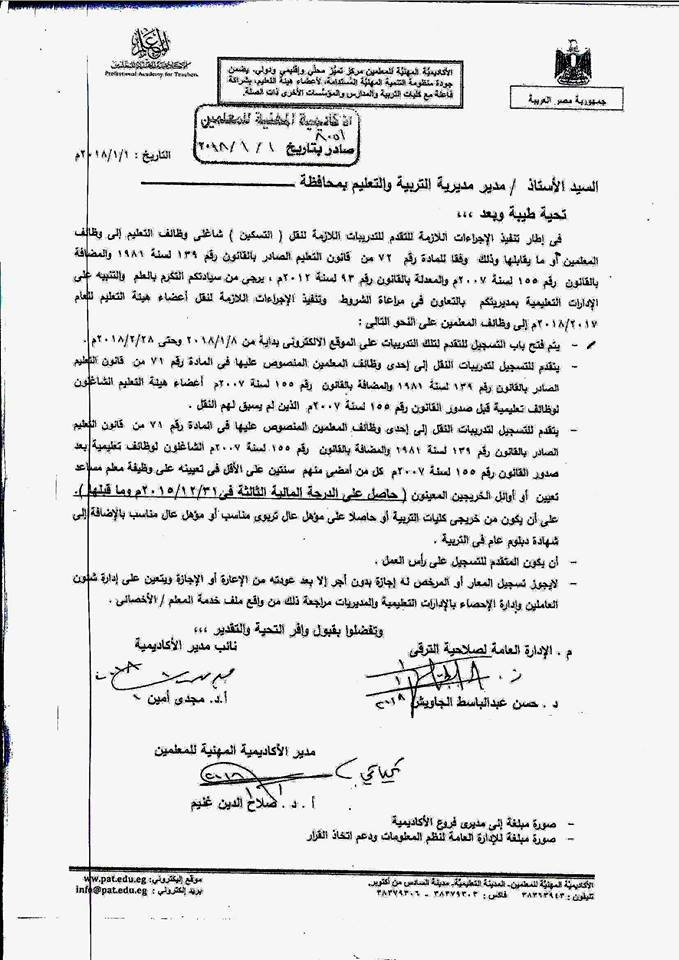 Professional Academy for Teachers
الأكاديمية المهنية للمعلمين مركز تميز محلي وإقليمي ودولي، يضمن
جودة منظومة التنمية المهنية المستدامة، لأعضاء هيئة التعليم، بشراكة
فاعلة مع كليات التربية والمدارس والمؤسسات الأخرى ذات الصلة.
جمهورية مصر العربية
الأكاديمية المهنية للمعلمين
صادر بتاريخ ٢٠١٨/١/١
التاريخ : ٢٠١٨/١/١م
السيد الأستاذ / مدير مديرية التربية والتعليم بمحافظة
تحية طيبة وبعد ،،،
فى إطار تنفيذ الإجراءات اللازمة للتقدم للتدريبات اللازمة لنقل ( التسكين ) شاغلى وظائف التعليم إلى وظائف
المعلمين أو ما يقابلها وذلك وفقا للمادة رقم ٧٢ من قانون التعليم الصادر بالقانون رقم ١٣٩ لسنة ١٩٨١ والمضافة
بالقانون رقم ١٥٥ لسنة ٢٠٠٧م والمعدلة بالقانون رقم ٩٣ لسنة ٢٠١٢م ، يرجى من سيادتكم التكرم بالعلم والتنبيه على
الإدارات التعليمية بمديريتكم بالتعاون فى مراعاة الشروط وتنفيذ الإجراءات اللازمة لنقل أعضاء هيئة التعليم للعام
٢٠١٨/٢٠١٧م إلى وظائف المعلمين على النحو التالى :
- يتم فتح باب التسجيل للتقدم لتلك التدريبات على الموقع الالكترونى بداية من ٢٠١٨/١/٨ وحتى ٢٠١٨/٢/٢٨م .
- يتقدم للتسجيل لتدريبات النقل إلى إحدى وظائف المعلمين المنصوص عليها فى المادة رقم ٧١ من قانون التعليم
الصادر بالقانون رقم ١٣٩ لسنة ١٩٨١ والمضافة بالقانون رقم ١٥٥ لسنة ٢٠٠٧م أعضاء هيئة التعليم الشاغلون
لوظائف تعليمية قبل صدور القانون رقم ١٥٥ لسنة ٢٠٠٧م الذين لم يسبق لهم النقل .
- يتقدم للتسجيل لتدريبات النقل إلى إحدى وظائف المعلمين المنصوص عليها فى المادة رقم ٧١ من قانون التعليم
الصادر بالقانون رقم ١٣٩ لسنة ١٩٨١ والمضافة بالقانون رقم ١٥٥ لسنة ٢٠٠٧م الشاغلون لوظائف تعليمية بعد
صدور القانون رقم ١٥٥ لسنة ٢٠٠٧م كل من أمضى منهم سنتين على الأقل فى تعيينه على وظيفة معلم مساعد
تعيين أو أوائل الخريجين المعينون ( حاصل على الدرجة المالية الثالثة فى ٢٠١٥/١٢/٣١م وما قبلها ) .
على أن يكون من خريجى كليات التربية أو حاصلا على مؤهل عال تربوى مناسب أو مؤهل عال مناسب بالإضافة إلى
شهادة دبلوم عام فى التربية .
- أن يكون المتقدم للتسجيل على رأس العمل .
- لايجوز تسجيل المعار أو المرخص له إجازة بدون أجر إلا بعد عودته من الإعارة أو الإجازة ويتعين على إدارة شئون
العاملين وإدارة الإحصاء بالإدارات التعليمية والمديريات مراجعة ذلك من واقع ملف خدمة المعلم / الأخصائى .
وتفضلوا بقبول وافر التحية والتقدير ،،،
م . الإدارة العامة لصلاحية الترقى
نائب مدير الأكاديمية
د . حسن عبدالباسط الجاويش
أ.د. مجدى أمين
مدير الأكاديمية المهنية للمعلمين
أ . د . صلاح الدين غنيم
- صورة مبلغة إلى مديرى فروع الأكاديمية
- صورة مبلغة للإدارة العامة لنظم المعلومات ودعم اتخاذ القرار
الأكاديمية المهنية للمعلمين. المدينة التعليمية. مدينة السادس من أكتوبر.
تليفون : ٣٨٣٦٣٩٤٣ فاكس : ٣٨٣٧٩٣٠٣ - ٣٨٣٧٩٣٠٦
موقع إليكتروني: www.pat.edu.eg
بريد إلكتروني: info@pat.edu.eg